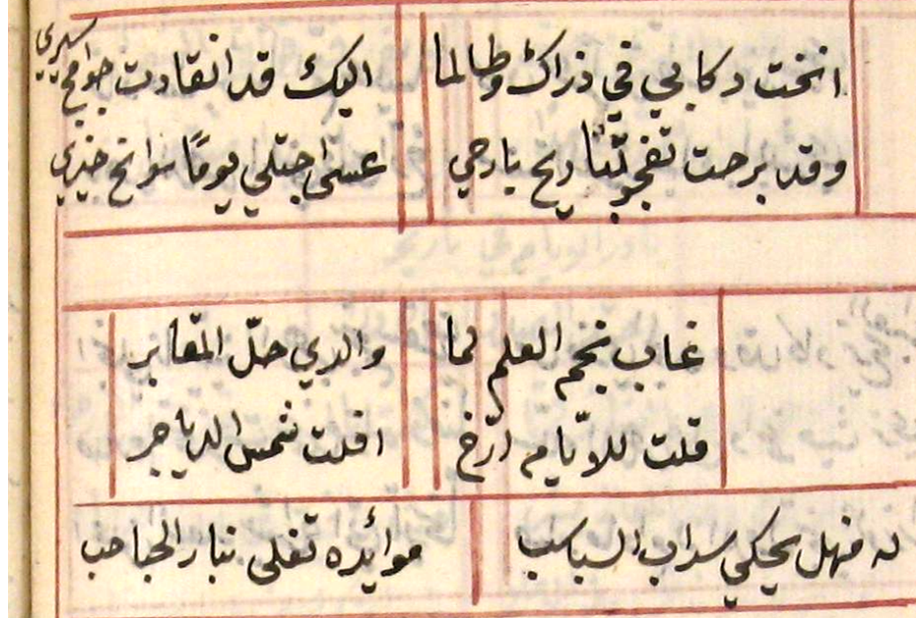 انخت ركابي في ذراك وطالما اليك قد انقادت جوامح سيري
وقد برحت ريح بارحي عسى اجتلي يومًا سوانح خيري
غاب نجم العلم لما والدي حلّ المقابر
قلت للايّام ارّخ افلت شمس الدياجر
له منهل يحكي سراب السباسب موائده تغلى بنار الحباحب